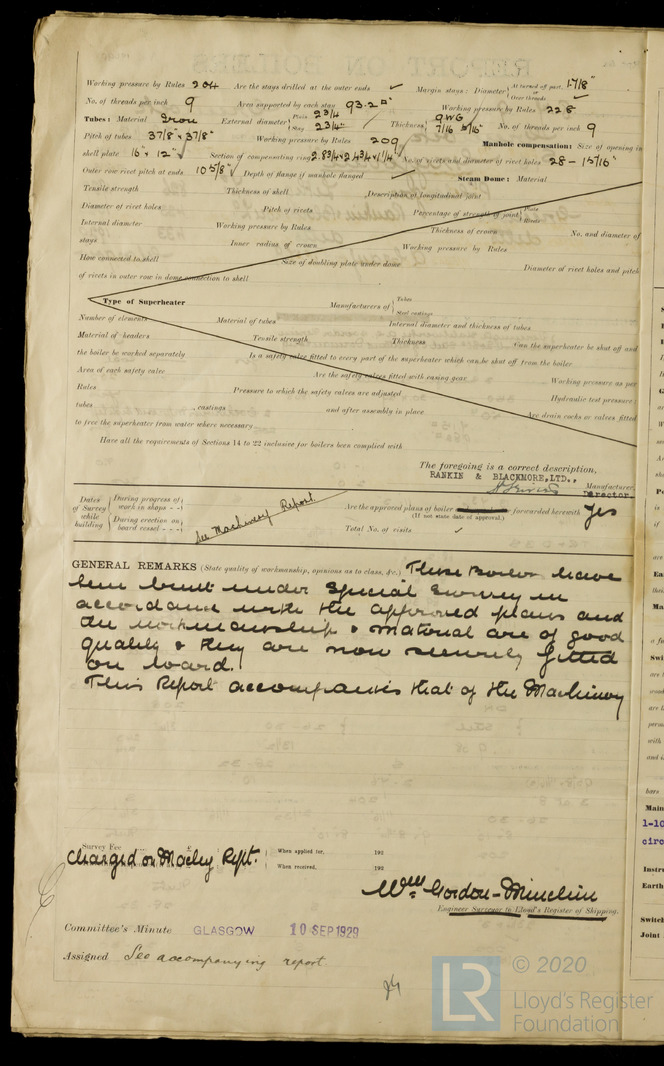 Working pressure by Rules 204 Are the stays drilled at the outer ends ✓ Margin stays: Diameter { At turned off part, or Over threads 1 7/8" ✓
No. of threads per inch 9 Area supported by each stay 93.2 □" Working pressure by Rules 228
Tubes: Material Iron External diameter { Plain 2 3/4 Stay 2 3/4" Thickness { 9 WG 7/16 5/16" No. of threads per inch 9
Pitch of tubes 3 7/8" x 3 7/8" Working pressure by Rules 209 Manhole compensation: Size of opening in
shell plate 16" x 12" ✓ Section of compensating ring No. of rivets and diameter of rivet holes 28 - 15/16"
Outer row rivet pitch at ends 10 5/8" Depth of flange if manhole flanged ✓ Steam Dome: Material
Tensile strength Thickness of shell Description of longitudinal joint
Diameter of rivet holes Pitch of rivets Percentage of strength of joint { Plate Rivets
Internal diameter Working pressure by Rules Thickness of crown No. and diameter of
stays Inner radius of crown Working pressure by Rules
How connected to shell Size of doubling plate under dome Diameter of rivet holes and pitch
of rivets in outer row in dome connection to shell
Type of Superheater Manufacturers of { Tubes Steel castings
Number of elements Material of tubes Internal diameter and thickness of tubes
Material of headers Tensile strength Thickness Can the superheater be shut off and
the boiler be worked separately Is a safety valve fitted to every part of the superheater which can be shut off from the boiler
Area of each safety valve Are the safety valves fitted with easing gear Working pressure as per
Rules Pressure to which the safety valves are adjusted Hydraulic test pressure:
tubes , castings and after assembly in place Are drain cocks or valves fitted
to free the superheater from water where necessary
Have all the requirements of Sections 14 to 22 inclusive for boilers been complied with
The foregoing is a correct description,
RANKIN & BLACKMORE, LTD., Manufacturer.
Director.
Dates of Survey while building { During progress of work in shops - - } { During erection on board vessel - - - } See Machinery Report
Are the approved plans of boiler forwarded herewith Yes
(If not state date of approval.)
Total No. of visits ✓
GENERAL REMARKS (State quality of workmanship, opinions as to class, &c.) These Boilers have
been built under Special Survey in
accordance with the approved plans and
the workmanship & material are of good
quality & they are now securely fitted
on board.
This Report accompanies that of the Machinery
Survey Fee £ When applied for, 192
Charged on Machy Rept.
When received, 192
Wm Gordon-Minchin
Engineer Surveyor to Lloyd's Register of Shipping.
Committee's Minute GLASGOW 10 SEP 1929
Assigned See accompanying report
LR © 2020
Lloyd's Register
Foundation